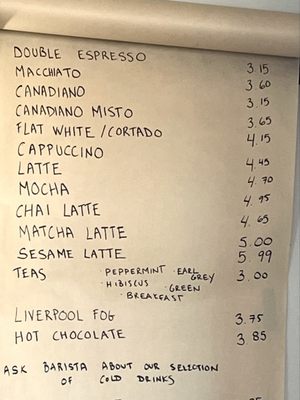 DOUBLE ESPRESSO 3.15
MACCHIATO 3.60
CANADIANO 3.15
CANADIANO MISTO 3.65
FLAT WHITE / CORTADO 4.15
CAPPUCCINO 4.45
LATTE 4.70
MOCHA 4.95
CHAI LATTE 4.65
MATCHA LATTE 5.00
SESAME LATTE 5.99
TEAS · PEPPERMINT · EARL GREY 3.00
· HIBISCUS · GREEN
· BREAKFAST
LIVERPOOL FOG 3.75
HOT CHOCOLATE 3.85
ASK BARISTA ABOUT OUR SELECTION
OF COLD DRINKS